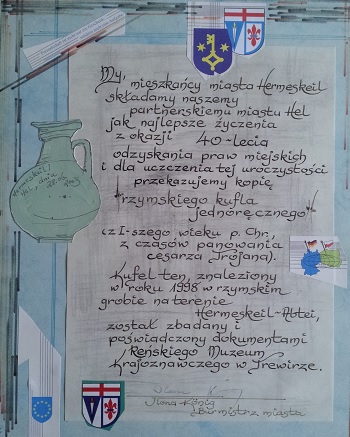 My,
mieszkańcy miasta Hermeskeil
składamy naszemu
partnerskiemu miastu Hel
jak najlepsze życzenia
z okazji 40-lecia
odzyskania praw miejskich
i dla uczczenia tej uroczystości
przekazujemy kopię
"rzymskiego kufla
jednoręcznego"
(z I-szego wieku p. Chr.,
z czasów panowania
cesarza Trojana).
Kufel ten, znaleziony
w roku 1998 w rzymskim
grobie na terenie
Hermeskeil-Abtei,
został zbadany i
poświadczony dokumentami
Reńskiego Muzeum
Krajoznawczego w Trewirze.
Ilona König
Burmistrz miasta
Hermeskeil